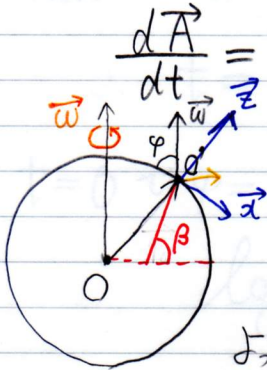 dA⃗/dt =
ω⃗ ω⃗ z⃗
φ θ
x⃗
β
O
よ